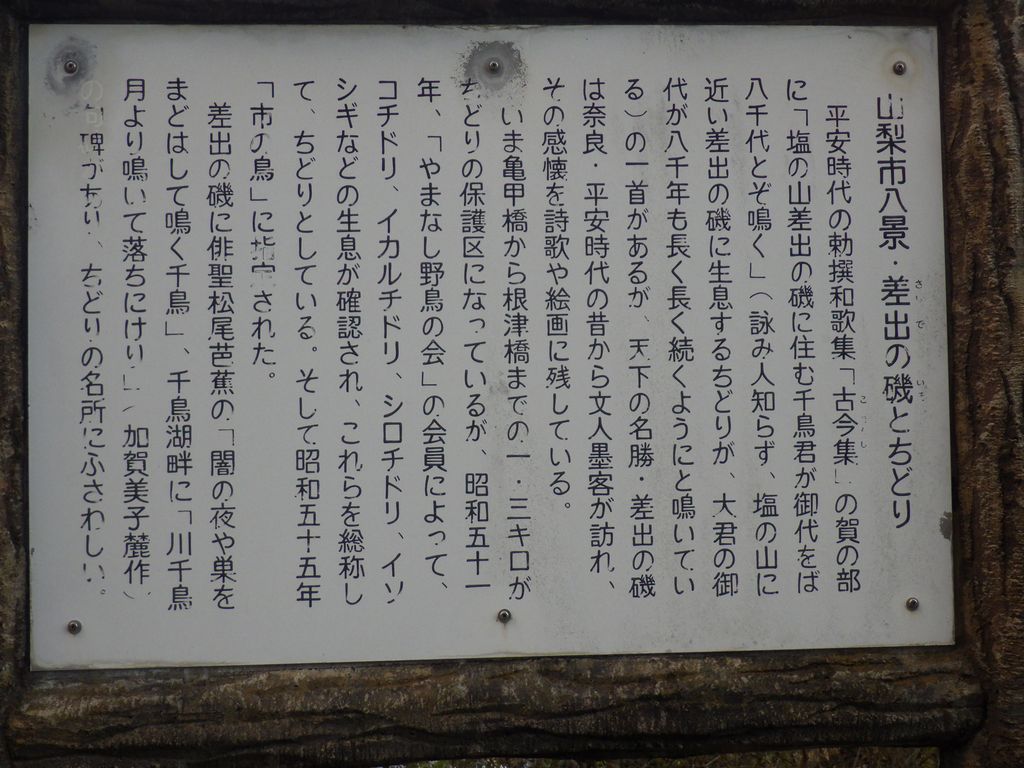 山梨市八景・差出の磯とちどり
平安時代の勅撰和歌集「古今集」の賀の部
に「塩の山差出の磯に住む千鳥君が御代をば
八千代とぞ鳴く」（詠み人知らず、塩の山に
近い差出の磯に生息するちどりが、大君の御
代が八千年も長く長く続くようにと鳴いてい
る）の一首があるが、天下の名勝・差出の磯
は奈良・平安時代の昔から文人墨客が訪れ、
その感懐を詩歌や絵画に残している。
いま亀甲橋から根津橋までの一・三キロが
ちどりの保護区になっているが、昭和五十一
年、「やまなし野鳥の会」の会員によって、
コチドリ、イカルチドリ、シロチドリ、イソ
シギなどの生息が確認され、これらを総称し
て、ちどりとしている。そして昭和五十五年
「市の鳥」に指定された。
差出の磯に俳聖松尾芭蕉の「闇の夜や巣を
まどはして鳴く千鳥」、千鳥湖畔に「川千鳥
月より鳴いて落ちにけり」（加賀美子麓作）
の句碑があり、ちどりの名所にふさわしい。